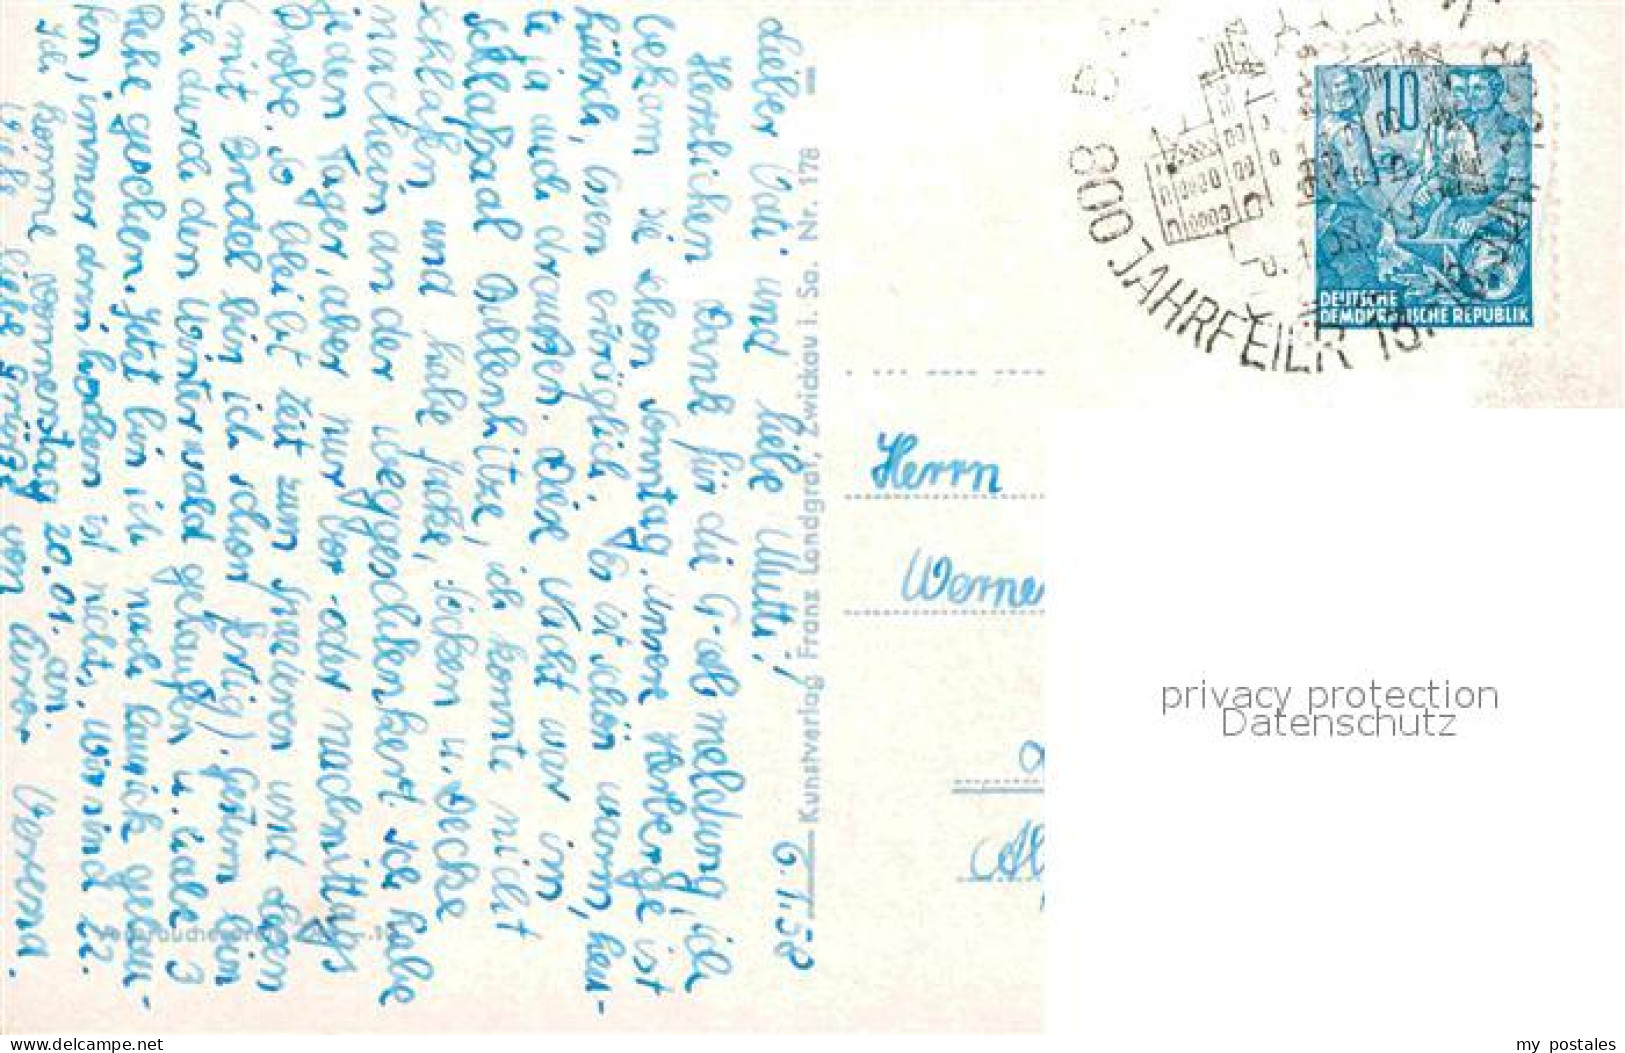 6.1.58
Lieber Vati und liebe Mutti!
Herzlichen Dank für die G-ab meldung, ich
bekam sie schon Sonntag. Unsere Herberge ist
hübsch, Essen erträglich. Es ist schön warm, heu-
te ja auch draußen. Die Nacht war im
Schlafsaal Bullenhitze, ich konnte nicht
schlafen, und habe Jacke, Socken u. Decke
nach der weggeschlenkert. Ich habe
jeden Tag, aber nur vor- oder nachmittags
Probe, so bleibt Zeit zum spazieren und lesen
(mit Bändel bin ich schon fertig). Gestern bin
ich durch den Winterwald gelaufen u. habe 3
Rehe gesehen. Jetzt bin ich nach Lauwick gelau-
fen, immer drin hocken ist nicht, wir sind 22.
Ich komme Donnerstag 20.01. an
Viele liebe Grüße von Eurer Verena.
Kunstverlag Franz Landgraf, Zwickau i. Sa. Nr. 178
800 JAHRFEIER 15.
JUNI
10
DEUTSCHE
DEMOKRATISCHE REPUBLIK
Herrn
Werne
privacy protection
Datenschutz
www.delcampe.net
my_postales